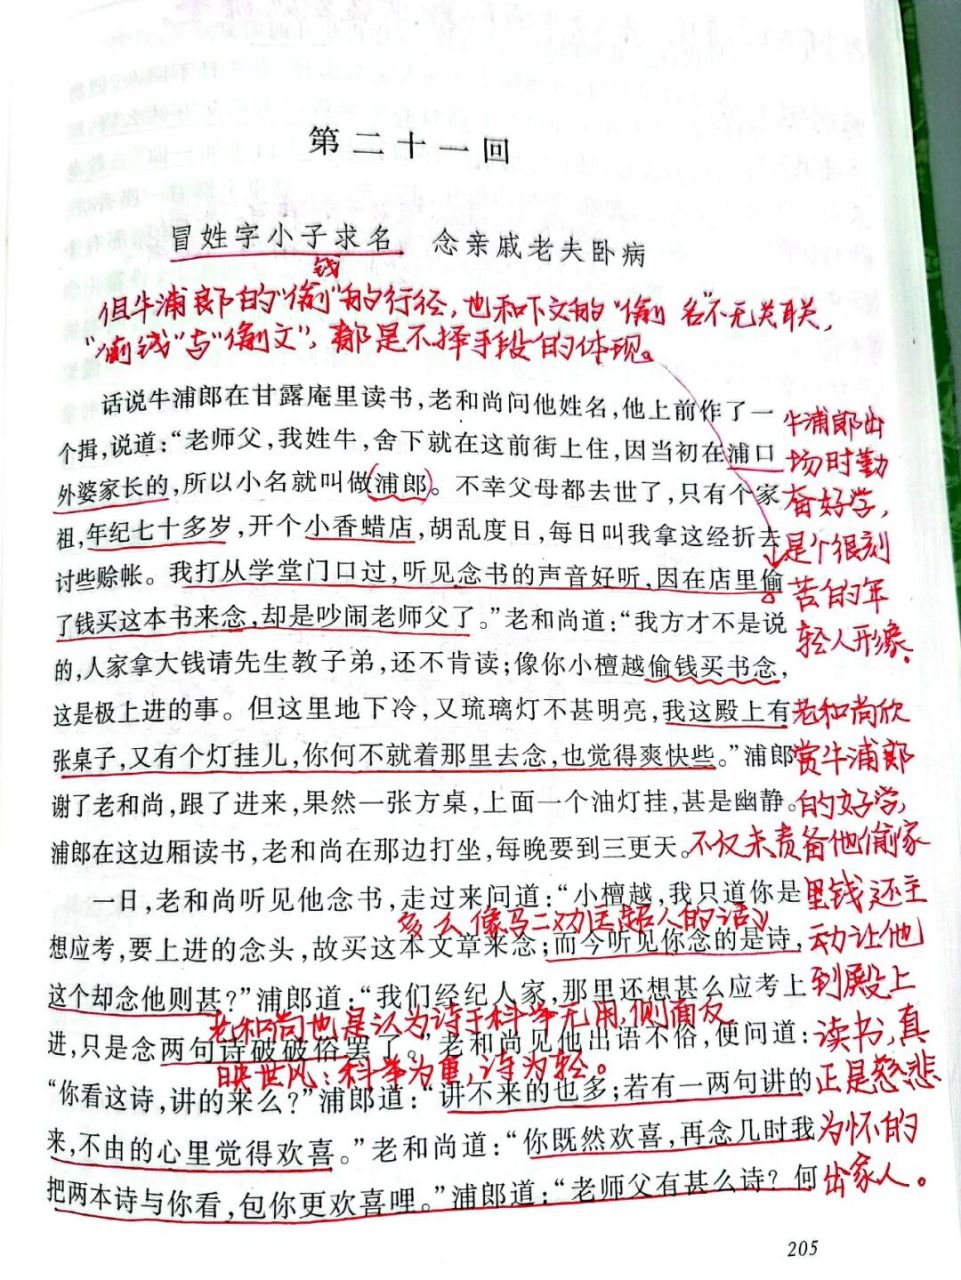 第二十一回
冒姓字小子求名　念亲戚老夫卧病
钱
但牛浦郎的“偷”的行径，也和下文的“偷名”不无关联，
“偷钱”与“偷文”，都是不择手段的体现。
话说牛浦郎在甘露庵里读书，老和尚问他姓名，他上前作了一
个揖，说道：“老师父，我姓牛，舍下就在这前街上住，因当初在浦口
外婆家长的，所以小名就叫做浦郎。不幸父母都去世了，只有个家
祖，年纪七十多岁，开个小香蜡店，胡乱度日，每日叫我拿这经折去
讨些赊帐。我打从学堂门口过，听见念书的声音好听，因在店里偷
了钱买这本书来念，却是吵闹老师父了。”老和尚道：“我方才不是说
的，人家拿大钱请先生教子弟，还不肯读；像你小檀越偷钱买书念，
这是极上进的事。但这里地下冷，又琉璃灯不甚明亮，我这殿上有
张桌子，又有个灯挂儿，你何不就着那里去念，也觉得爽快些。”浦郎
谢了老和尚，跟了进来，果然一张方桌，上面一个油灯挂，甚是幽静。
浦郎在这边厢读书，老和尚在那边打坐，每晚要到三更天。
一日，老和尚听见他念书，走过来问道：“小檀越，我只道你是
多么像马二劝匡超人的话
想应考，要上进的念头，故买这本文章来念；而今听见你念的是诗，
这个却念他则甚？”浦郎道：“我们经纪人家，那里还想甚么应考上
老和尚也是认为诗于科举无用，侧面反
进，只是念两句诗破破俗罢了。”老和尚见他出语不俗，便问道：
映世风：科举为重，诗为轻。
“你看这诗，讲的来么？”浦郎道：“讲不来的也多；若有一两句讲的
来，不由的心里觉得欢喜。”老和尚道：“你既然欢喜，再念几时我
把两本诗与你看，包你更欢喜哩。”浦郎道：“老师父有甚么诗？何
牛浦郎出
场时勤
奋好学，
是个很刻
苦的年
轻人形象。
老和尚欣
赏牛浦郎
的好学，
不仅未责备他偷家
里钱还主
动让他
到殿上
读书，真
正是慈悲
为怀的
出家人。
205